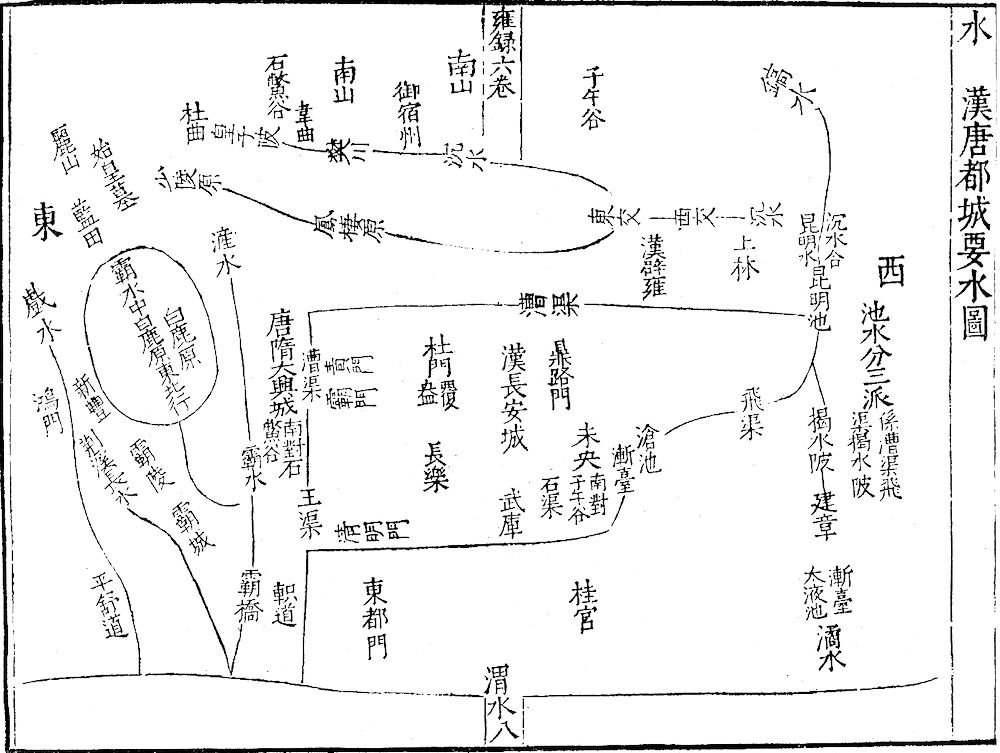 水
漢唐都城要水圖
雍録六卷
鎬水
子午谷
南山
御宿州
南山
石鱉谷
韋曲
樊川
沉水
杜曲
皇子陂
少陵原
鳳棲原
東交
西交
沉水
麗山
始皇墓
藍田
東
西
沉水合
昆明水
昆明池
上林
漢辟雍
漕渠
池水分三派
係漕渠飛
渠揭水陂
飛渠
揭水陂
建章
漸臺
太液池
潏水
滻水
霸水中白鹿原東北行
白鹿原
戲水
鴻門
新豐
荆溪長水
霸陵
霸城
平舒道
唐隋大興城
南對石
鱉谷
漕渠
青門
霸門
杜門
覆
盎
漢長安城
鼎路門
未央
南對
子午谷
滄池
漸臺
石渠
武庫
長樂
霸水
王渠
清明門
霸橋
軹道
東都門
桂宫
渭水八